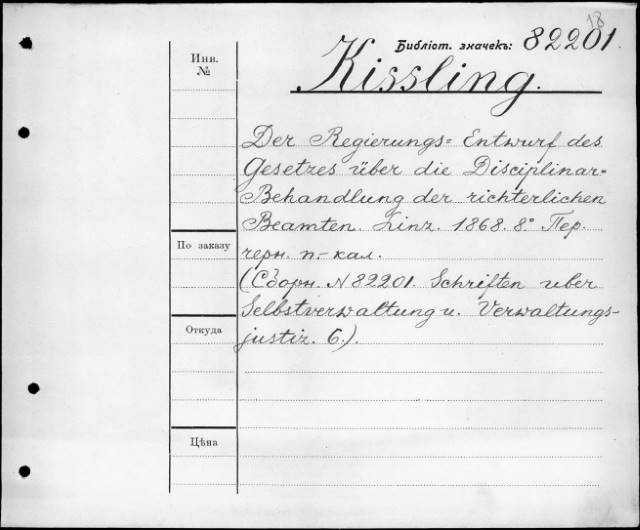 18
Библіот. значекъ: 82201.
Kissling.
Инв.
№
Der Regierungs= Entwurf des
Gesetzes über die Disciplinar=
Behandlung der richterlichen
Beamten. Linz. 1868. 8° Пер.
черн. п.-кал.
(Сборн. N 82201. Schriften uber
Selbstverwaltung u. Verwaltungs-
justiz. 6.).
По заказу
Откуда
Цѣна